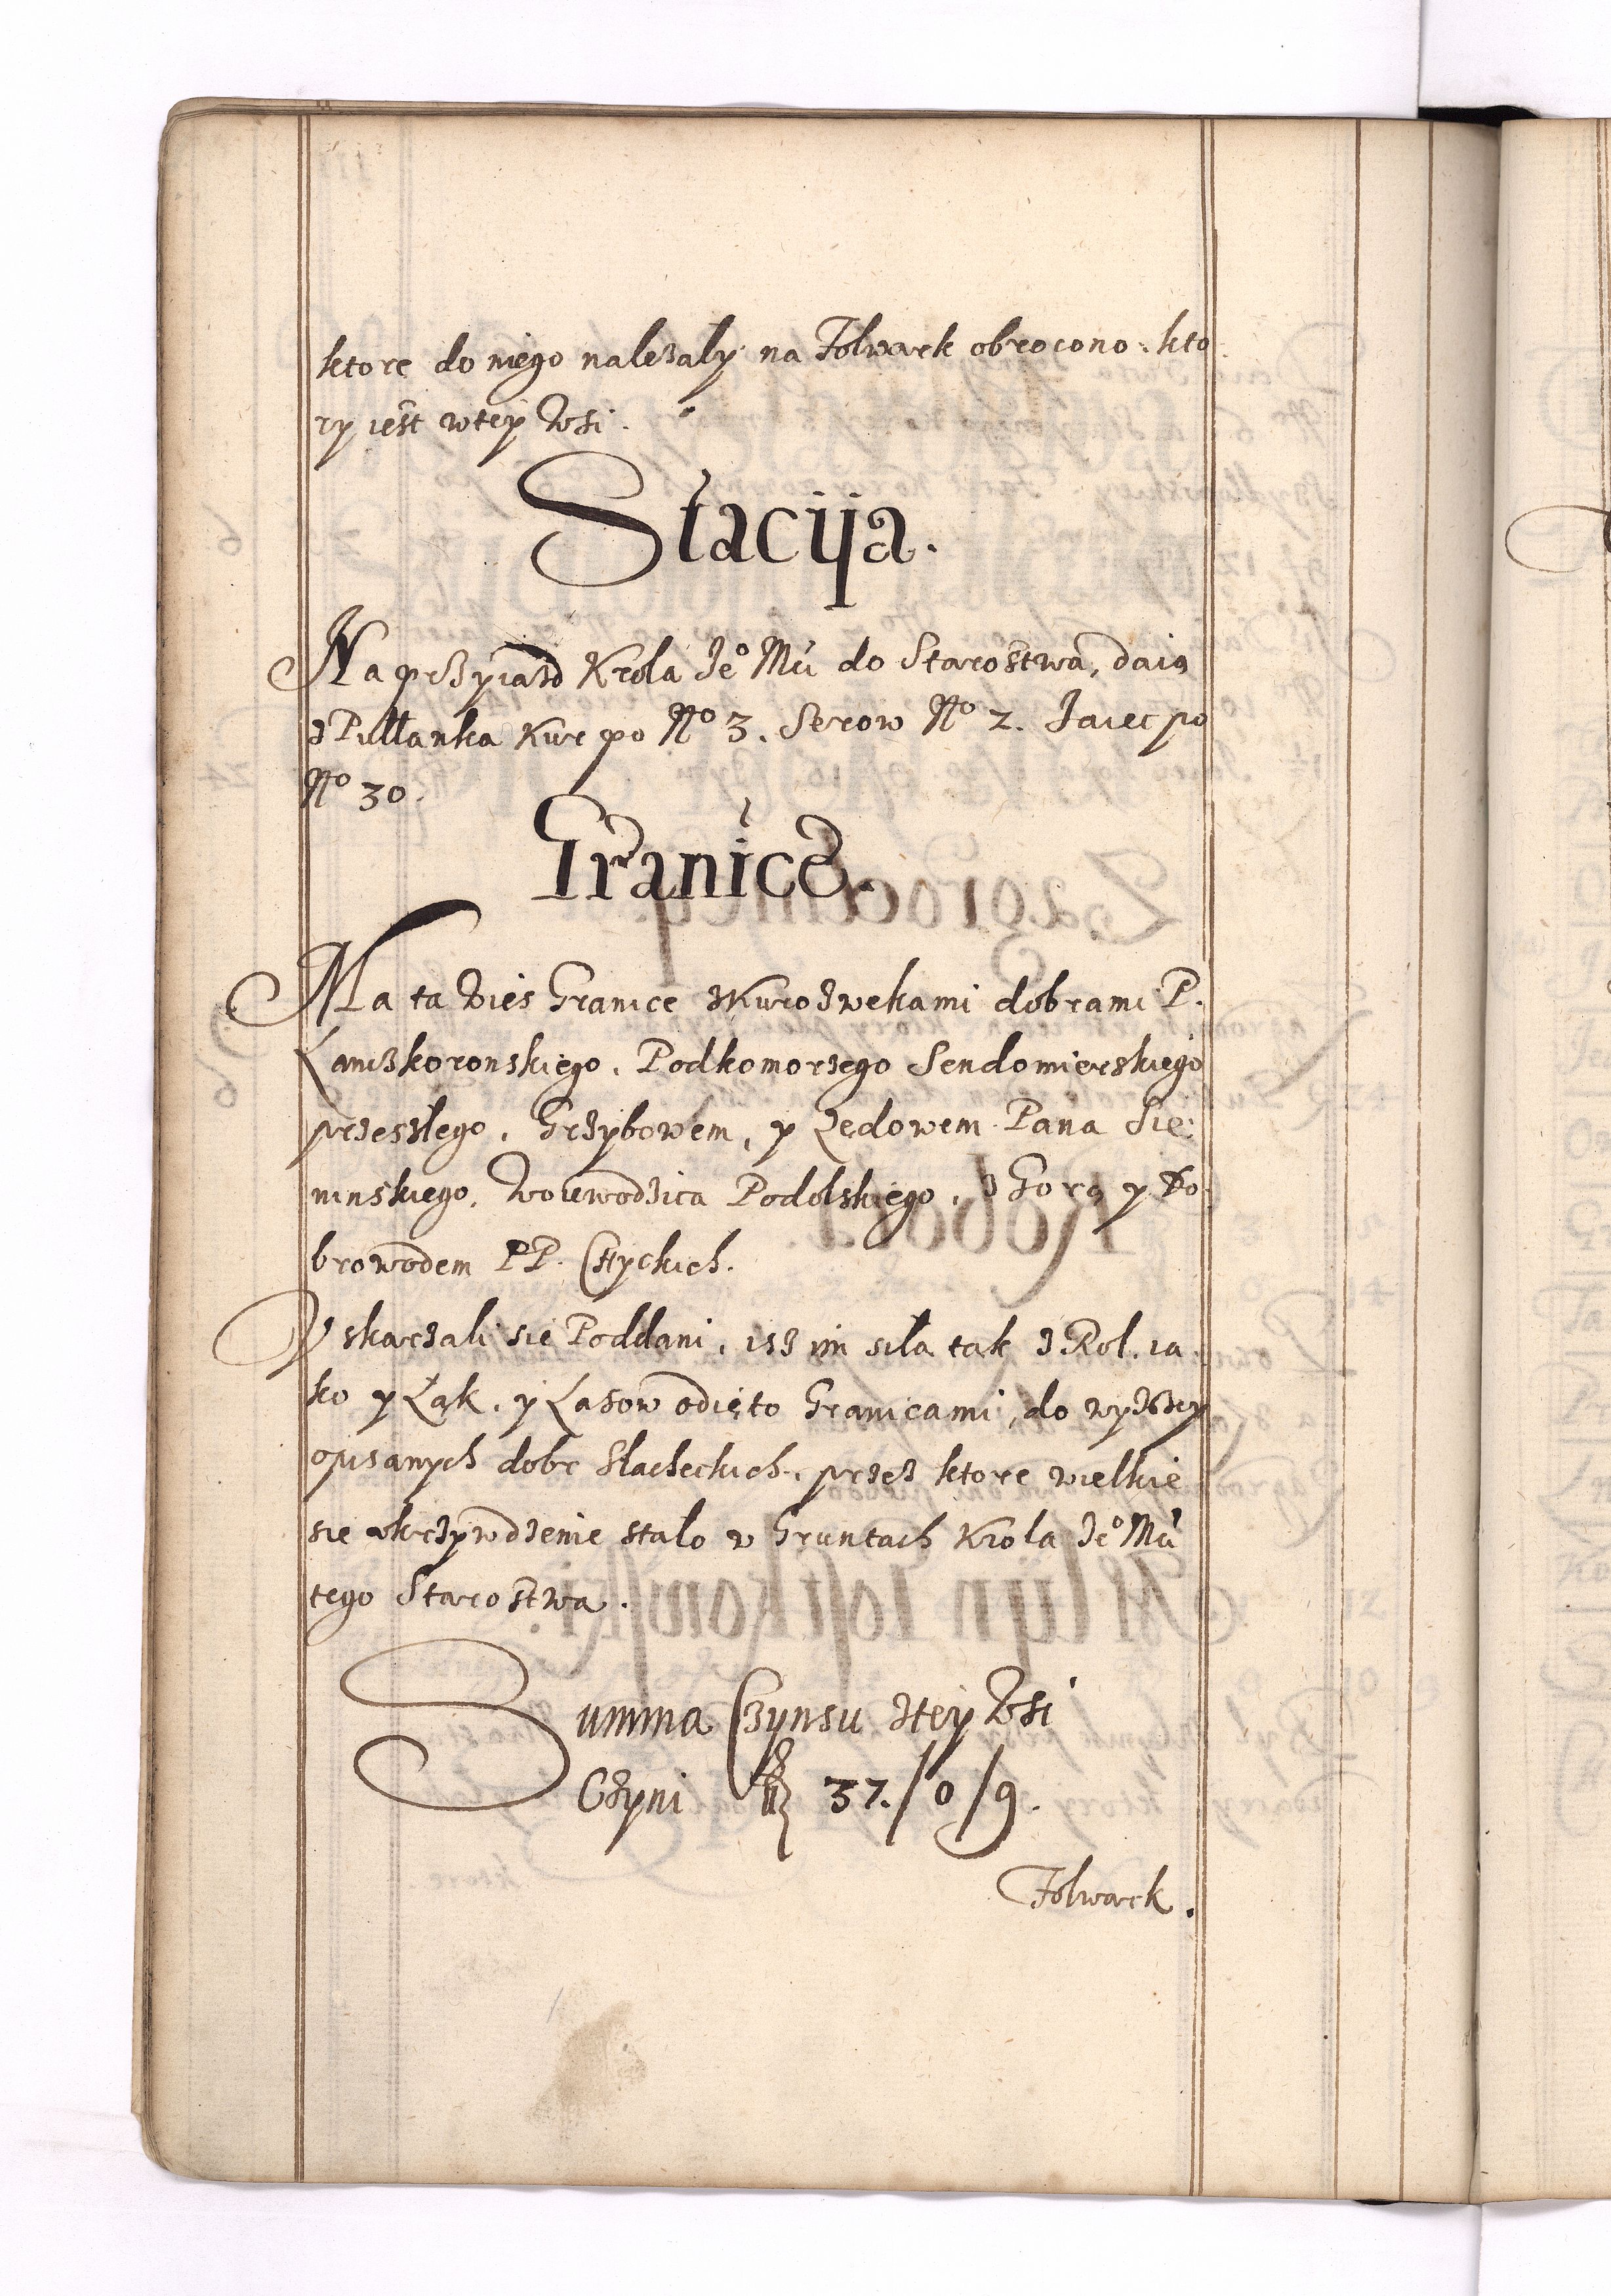 ktore do niego nalezaly na Folwark obrocono. kto
ry iest wtey Wsi.
Stacija.
Na przyiazd Krola Je° Mći do Starostwa, daią
z Pułłanka Kur po N° 3. Serow N° 2. Jaiec po
N° 30.
Granice.
Ma ta Wies Granice zKurozwekami dobrami P.
Lanczkoronskiego, Podkomorzego Sendomierskiego
przeszłego, Grzybowem, y Lędowem Pana Sie:
ninskiego, Woiewodzica Podolskiego, z Gorą y Do
browodem PP.
Vskarzali sie Poddani, isz im siła tak z Rol. ia
ko y Łąk, y Lasow odięto Granicami, do wyższey
opisanych dobr Slacheckich, przez ktore wielkie
sie vkrzywdzenie stalo w Gruntach Krola Je° Mći
tego Starostwa.
Summa Czynsu ztey Wsi
Czyni 37./0/9.
Folwark.